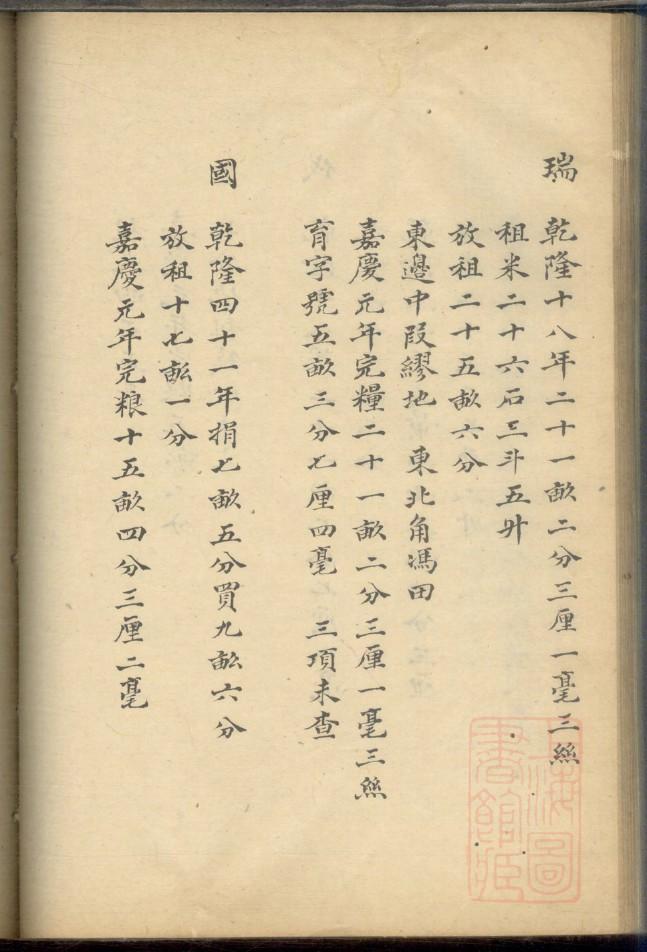 瑞　乾隆十八年二十一畝二分三厘一毫三絲
租米二十六石三斗五升
放租二十五畝六分
東邊中段繆地　東北角馮田
嘉慶元年完糧二十一畝二分三厘一毫三絲
育字號五畝三分七厘四毫　三項未查
國　乾隆四十一年捐七畝五分買九畝六分
放租十七畝一分
嘉慶元年完粮十五畝四分三厘二毫
海圖
書館